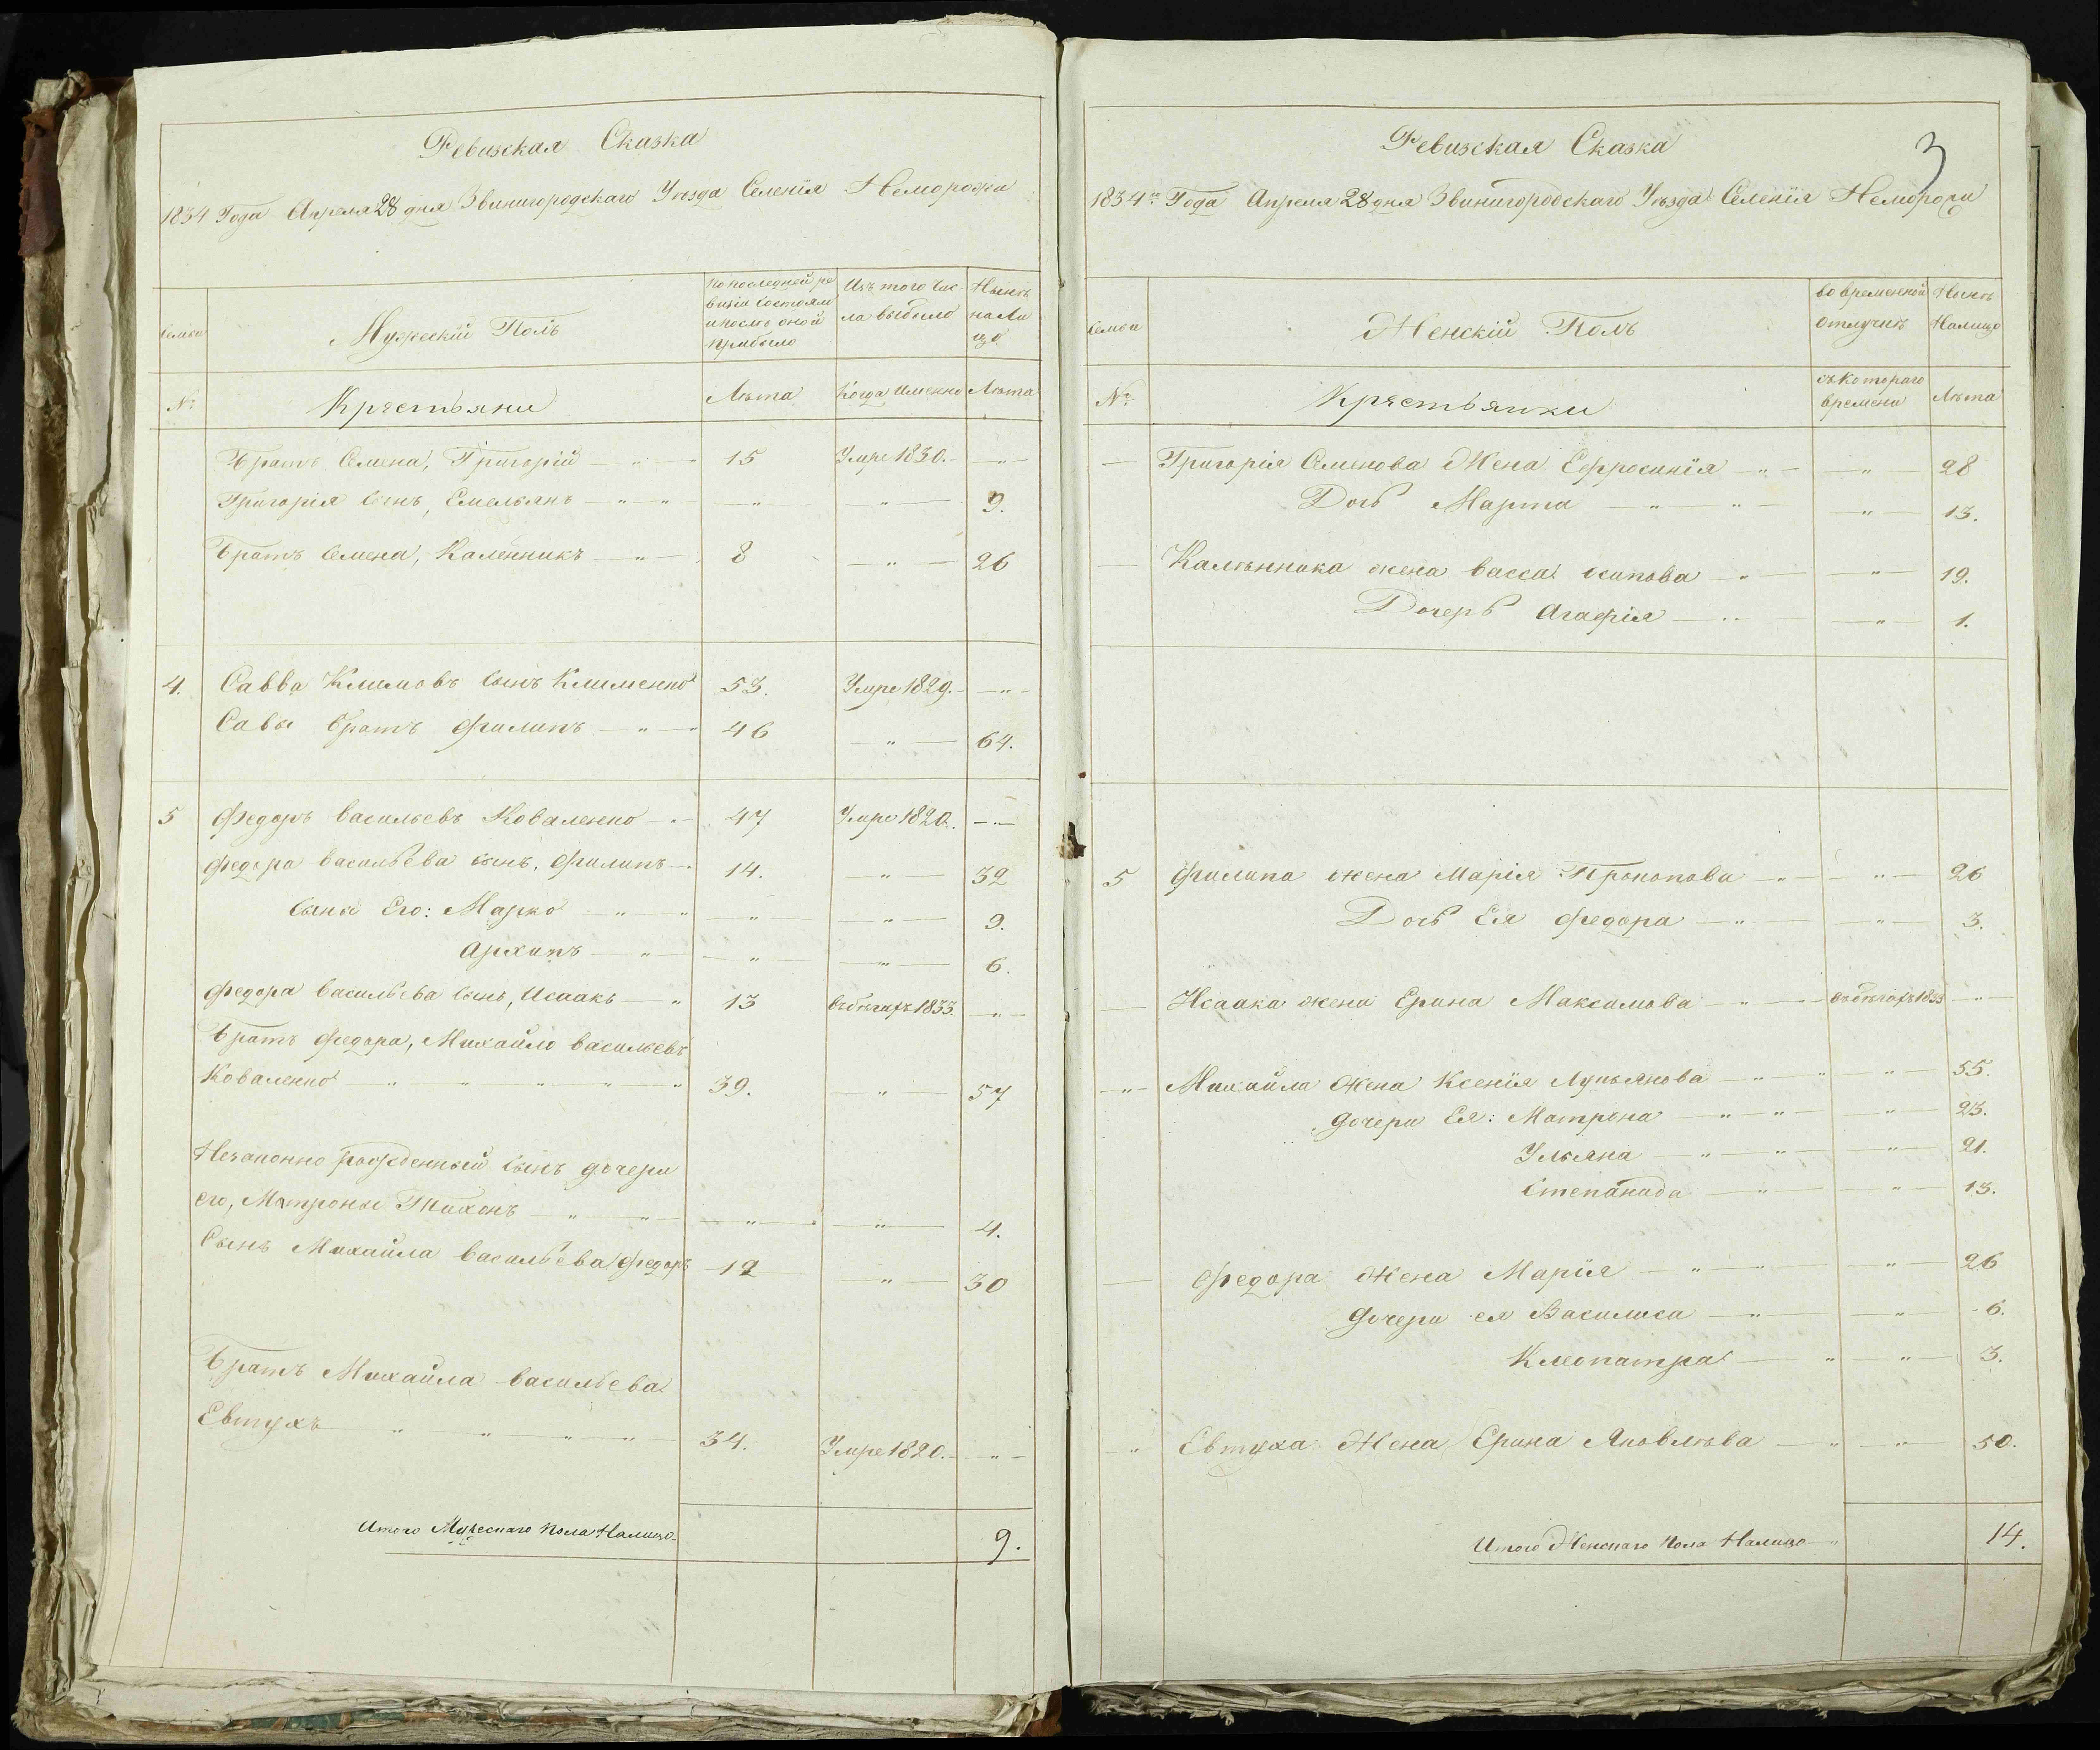 Ревизская Сказка
1834 Года Апреля 28 дня Звинигородскаго Уезда Селенія Неморожи
Семьи
Мужескій Полъ
По последней ре
визіи состояло
и после оной
прибыло
Изъ того чис
ла выбыло
Нынѣ
на ли
цо
№
Крестьяни
Лѣта
Когда именно
Лѣта
Братъ Семена, Григорій — " — 15 Умре 1830. — " —
Григорія сынъ, Емельянъ — " — " — " — " — 9.
Братъ Семена, Каленникъ — " — 8 — " — 26
4. Савва Климовъ сынъ Клименко 53. Умре 1829. — " —
Савы братъ Филипъ — " — 46 — " — 64.
5 Федоръ Васильевъ Коваленко — " — 47 Умре 1820. — " —
Федора Васильева сынъ, Филипъ — " 14. — " — 32
Сыны Его: Марко " — " — " — " — 9.
Архипъ — " — " — " — 6.
Федора Васильева сынъ, Исаакъ — " 13 Въ бѣгахъ 1833 — " —
Братъ Федора, Михайло Васильевъ
Коваленко — " — " — " — " — " 39. — " — 57
Незаконно рожденный сынъ дочери
его, Матроны Тихонъ — " — " — " — " — 4.
Сынъ Михайла Васильева Федоръ 12 — " — 30
Братъ Михайла Васильева
Евтухъ " " " " — 34. Умре 1820. — " —
Итого Мужескаго пола Налицо 9.
3
Ревизская Сказка
1834го Года Апреля 28 дня Звинигородскаго Уезда Селенія Неморожи
Семьи
Женскій Полъ
во временной
отлучкѣ
Нынѣ
Налицо
№
Крестьянки
съ котораго
времени
Лѣта
— Григорія Семенова Жена Ефросинія — " — " — 28
Дочь Марта — " — " — " — 13.
— Калѣнника жена Васса Осипова " — " — 19.
Дочерь Агафія — " — " — 1.
5 Филипа жена Марія Прокопова — " — " — 26
Дочь Ея Федора — " — " — 3.
— Исаака жена Ерина Максимова — " — въ бѣгахъ 1833 — " —
— " — Михайла жена Ксенія Лукьянова — " — " — " — 55.
дочери Ея: Матрона — " — " — " — 23.
Ульяна — " — " — " — 21.
Степанида — " — " — 13.
— Федора Жена Марія — " — " — " — 26
дочери ея Василиса — " — " — 6.
Клеопатра — " — " — 3.
— " Евтуха Жена Ерина Яковлѣва — " — " — 50.
Итого Женскаго пола Налицо — " 14.